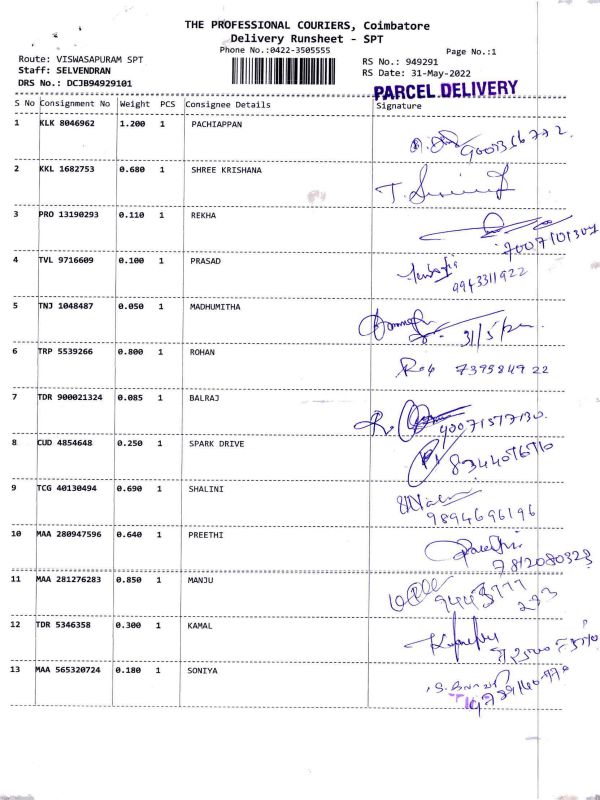 THE PROFESSIONAL COURIERS, Coimbatore
Delivery Runsheet - SPT
Phone No.:0422-3505555
Page No.:1
Route: VISWASAPURAM SPT
RS No.: 949291
Staff: SELVENDRAN
RS Date: 31-May-2022
DRS No.: DCJB94929101
PARCEL DELIVERY
S No Consignment No Weight PCS Consignee Details Signature
1 KLK 8046962 1.200 1 PACHIAPPAN
2 KKL 1682753 0.680 1 SHREE KRISHANA
3 PRO 13190293 0.110 1 REKHA
4 TVL 9716609 0.100 1 PRASAD
9943311922
5 TNJ 1048487 0.050 1 MADHUMITHA
6 TRP 5539266 0.800 1 ROHAN
7395849 22
7 TDR 900021324 0.085 1 BALRAJ
8 CUD 4854648 0.250 1 SPARK DRIVE
9 TCG 40130494 0.690 1 SHALINI
9894696196
10 MAA 280947596 0.640 1 PREETHI
7812080323
11 MAA 281276283 0.850 1 MANJU
12 TDR 5346358 0.300 1 KAMAL
13 MAA 565320724 0.180 1 SONIYA